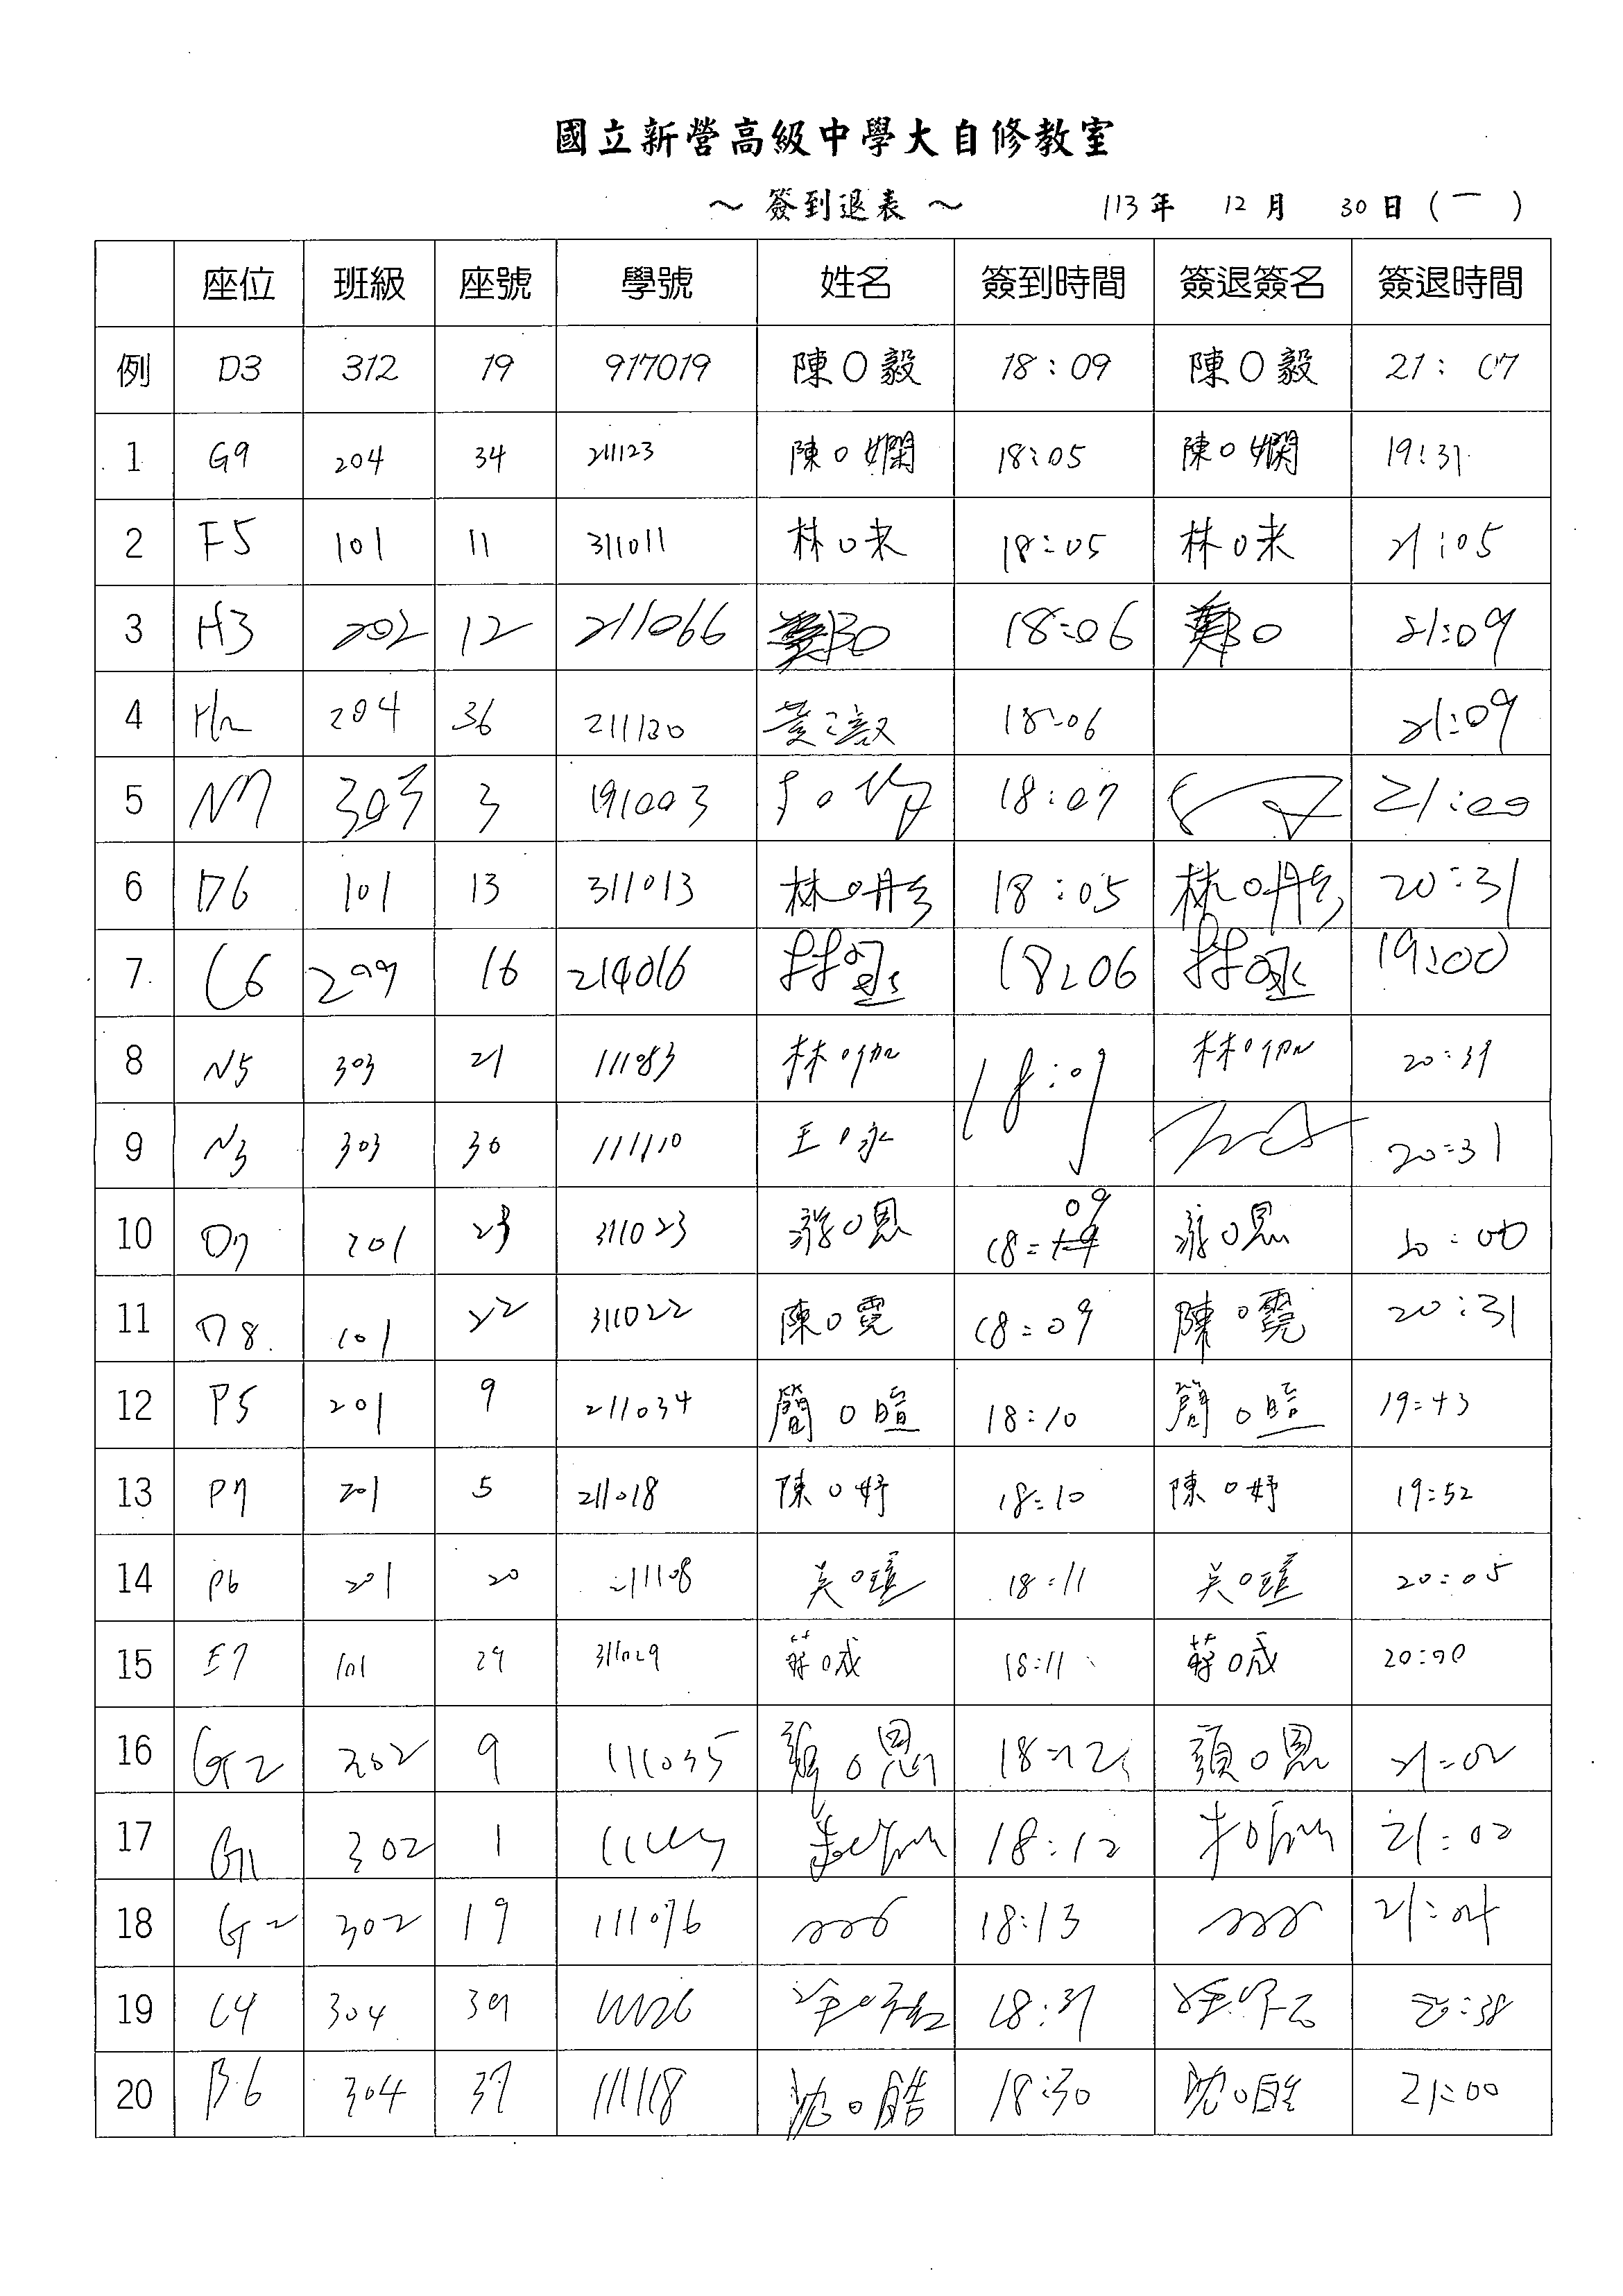 國立新營高級中學大自修教室
～ 簽到退表 ～ 113年 12月 30日(一)
座位 班級 座號 學號 姓名 簽到時間 簽退簽名 簽退時間
例 D3 312 19 917019 陳○毅 18:09 陳○毅 21:07
1 G9 204 34 211123 陳○嫻 18:05 陳○嫻 19:31
2 F5 101 11 311011 林○耒 18:05 林○耒 21:05
3 H3 202 12 211066 鄭○ 18:06 鄭○ 21:09
4 204 36 211130 黃 18:06 21:09
5 N7 303 3 191003 18:07 21:00
6 D6 101 13 311013 林○彤 18:05 林○彤 20:31
7 C6 209 16 214016 18:06 19:00
8 N5 303 21 111083 林○伽 18:09 林○伽 20:31
9 N3 303 30 111110 王○永 20:31
10 D7 101 23 311023 游○恩 18:09 游○恩 20:00
11 D8 101 22 311022 陳○霓 18:09 陳○霓 20:31
12 P5 201 9 211034 簡○暄 18:10 簡○暄 19:43
13 P7 201 5 211018 陳○妤 18:10 陳○妤 19:52
14 P6 201 20 211108 吳○瑄 18:11 吳○瑄 20:05
15 E7 101 29 311029 蔣○宬 18:11 蔣○宬 20:00
16 G2 302 9 111035 顏○恩 18:12 顏○恩 21:02
17 G1 302 1 18:12 21:02
18 G2 302 19 111076 18:13 21:04
19 C4 304 39 111126 18:31 20:38
20 B6 304 37 111118 沈○皓 18:30 沈○皓 21:00